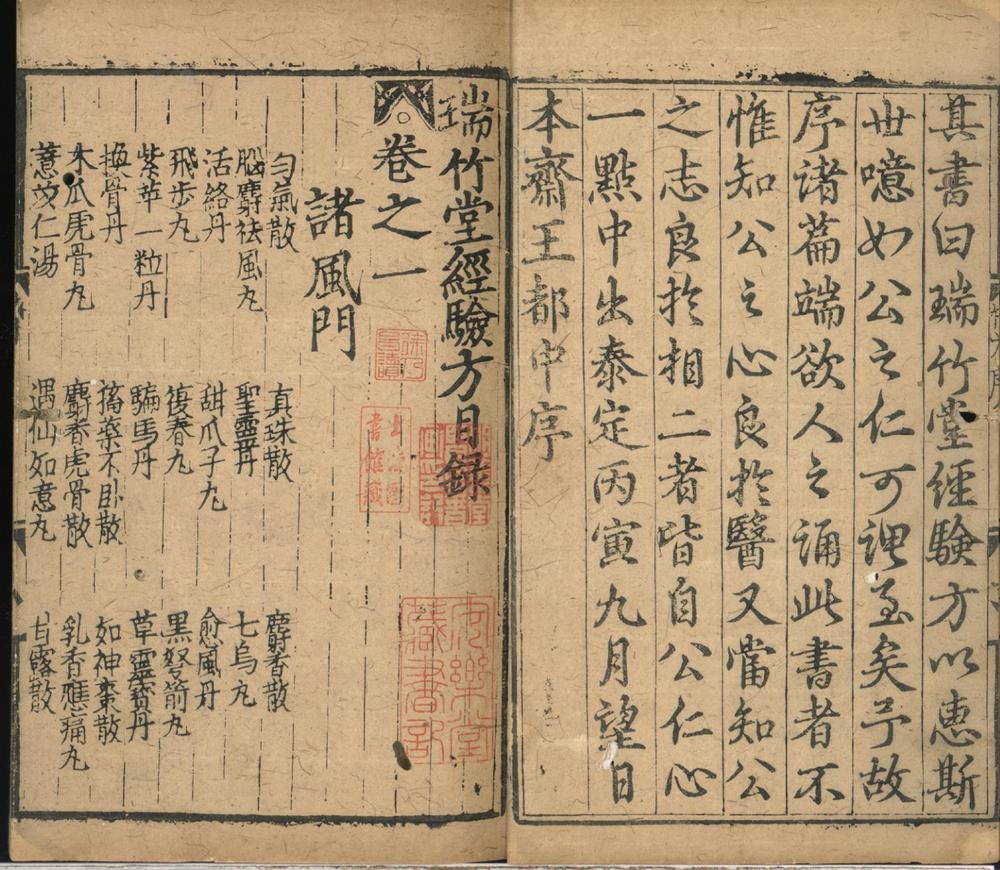 其書曰瑞竹堂經驗方以惠斯
世噫如公之仁可謂至矣予故
序諸篇端欲人之誦此書者不
惟知公之心良扵醫又當知公
之志良扵相二者皆自公仁心
一點中出泰定丙寅九月望日
本齋王都中序
瑞竹堂經驗方目録
卷之一
諸風門
勻氣散 真珠散 麝香散
腦麝祛風丸 聖靈丹 七烏丸
活絡丹 甜瓜子丸 愈風丹
飛步丸 復春丸 黑弩箭丸
紫萍一粒丹 騙馬丹 草靈寳丹
換骨丹 擣藥不卧散 如神棗散
木瓜虎骨丸 麝香虎骨散 乳香應痛丸
薏苡仁湯 遇仙如意丸 甘露散